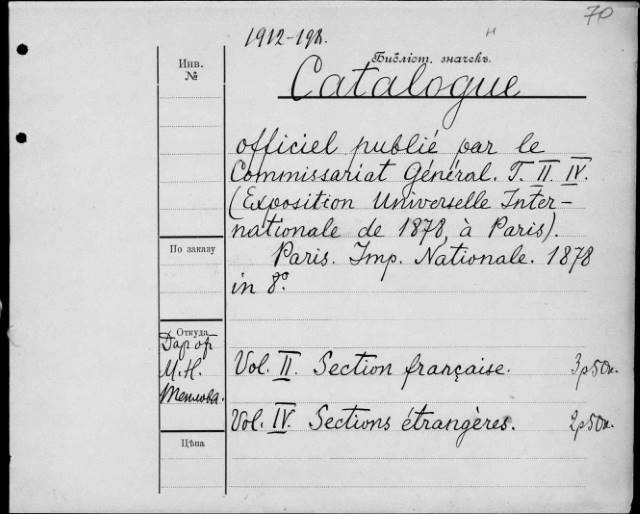 70
1912-198.
Инв.
№
Библіот. значекъ.
Catalogue
officiel publié par le
Commissariat Général. T. II. IV.
(Exposition Universelle Inter-
nationale de 1878, à Paris).
По заказу
Paris. Imp. Nationale. 1878
in 8º
Откуда
Дар от
М. Н.
Теплова.
Vol. II. Section française. 3 р 50 к.
Vol. IV. Sections étrangères. 2 р 50 к.
Цѣна